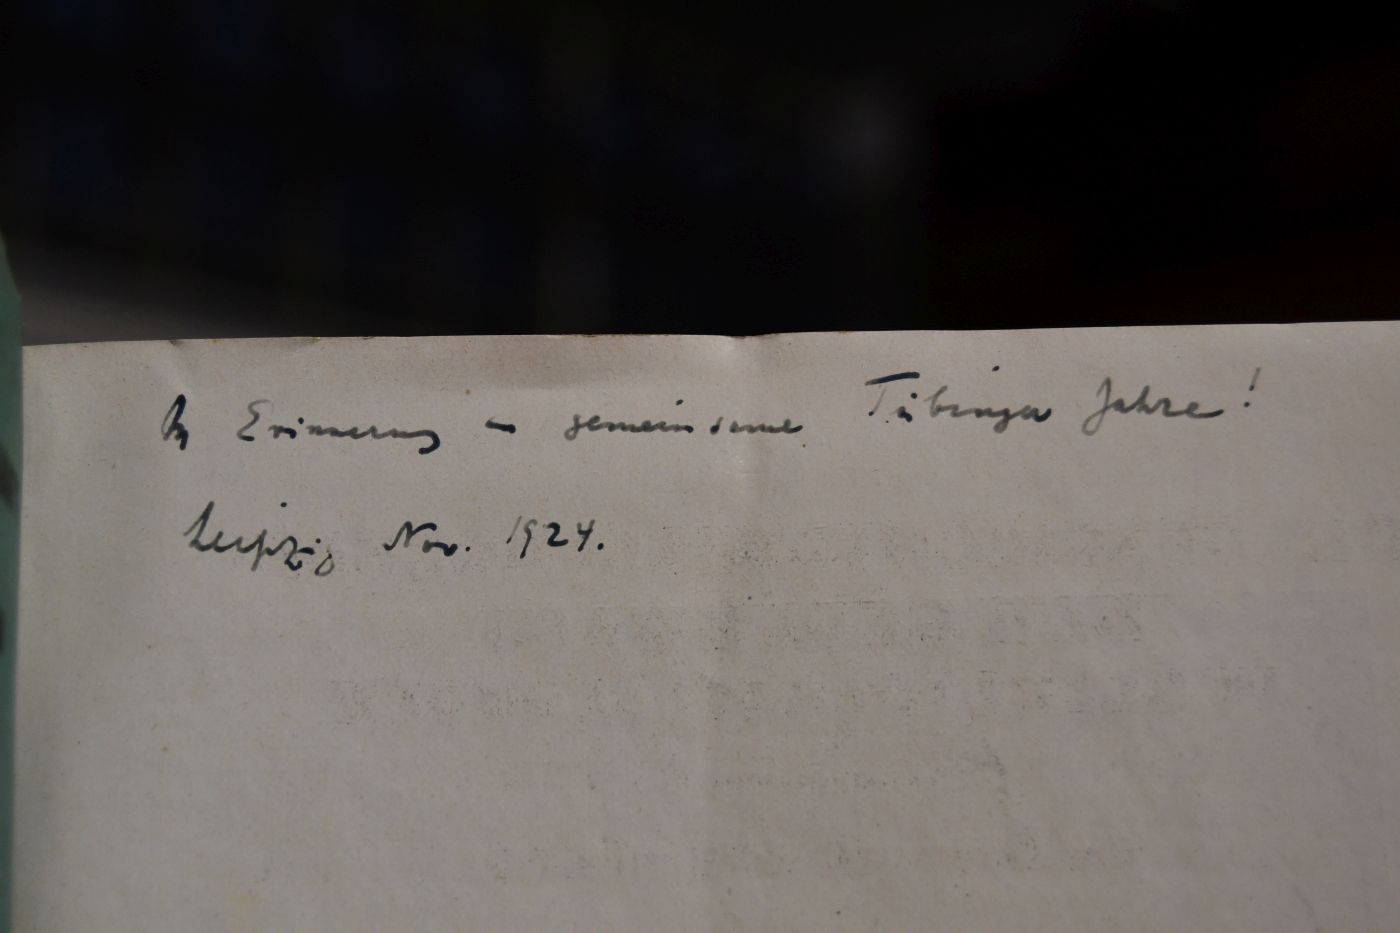 In Erinnerung an gemeinsame Tübinger Jahre!
Leipzig Nov. 1924.